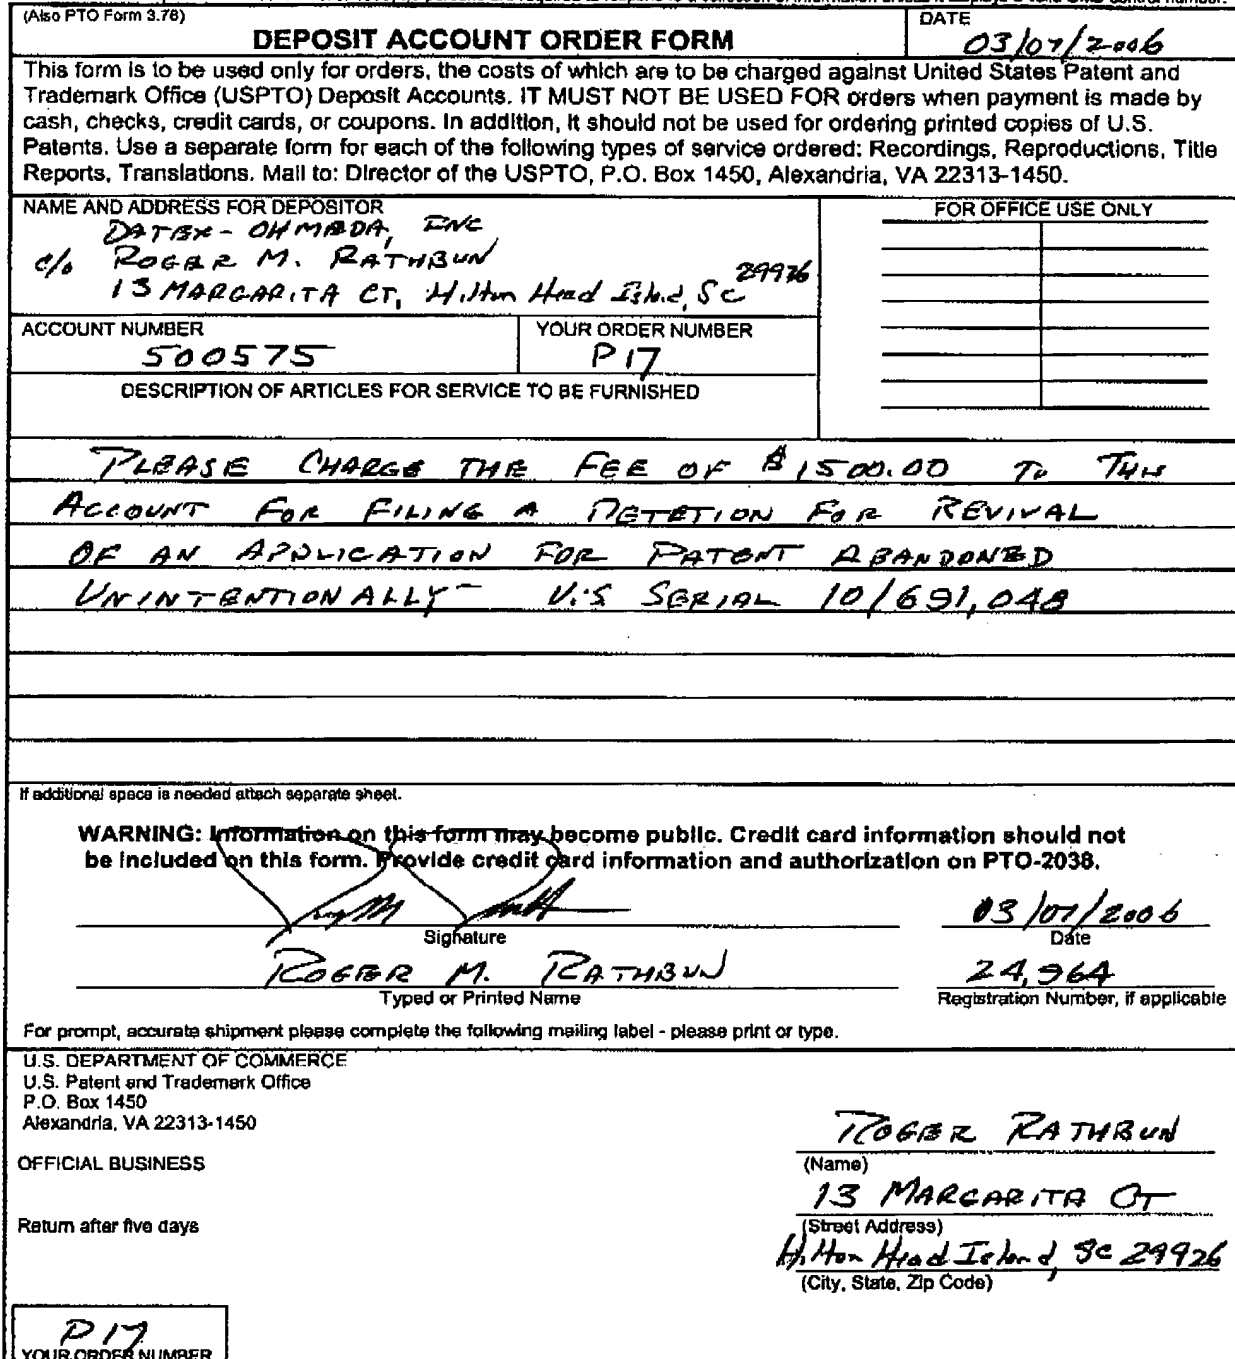 (Also PTO Form 3.76)
DEPOSIT ACCOUNT ORDER FORM
DATE
03/07/2006
This form is to be used only for orders, the costs of which are to be charged against United States Patent and
Trademark Office (USPTO) Deposit Accounts. IT MUST NOT BE USED FOR orders when payment is made by
cash, checks, credit cards, or coupons. In addition, it should not be used for ordering printed copies of U.S.
Patents. Use a separate form for each of the following types of service ordered: Recordings, Reproductions, Title
Reports, Translations. Mail to: Director of the USPTO, P.O. Box 1450, Alexandria, VA 22313-1450.
NAME AND ADDRESS FOR DEPOSITOR
DATEX-OHMEDA, INC
c/o ROGER M. RATHBUN
13 MARGARITA CT, Hilton Head Island, SC 29926
FOR OFFICE USE ONLY
ACCOUNT NUMBER
500575
YOUR ORDER NUMBER
P17
DESCRIPTION OF ARTICLES FOR SERVICE TO BE FURNISHED
PLEASE CHARGE THE FEE OF $1500.00 To THIS
ACCOUNT FOR FILING A PETETION FOR REVIVAL
OF AN APPLICATION FOR PATENT ABANDONED
UNINTENTIONALLY - U.S SERIAL 10/691,048
If additional space is needed attach separate sheet.
WARNING: Information on this form may become public. Credit card information should not
be included on this form. Provide credit card information and authorization on PTO-2038.
03/07/2006
Signature
Date
ROGER M. RATHBUN
24,964
Typed or Printed Name
Registration Number, if applicable
For prompt, accurate shipment please complete the following mailing label - please print or type.
U.S. DEPARTMENT OF COMMERCE
U.S. Patent and Trademark Office
P.O. Box 1450
Alexandria, VA 22313-1450
OFFICIAL BUSINESS
Return after five days
ROGER RATHBUN
(Name)
13 MARGARITA CT
(Street Address)
Hilton Head Island, SC 29926
(City, State, Zip Code)
P17
YOUR ORDER NUMBER